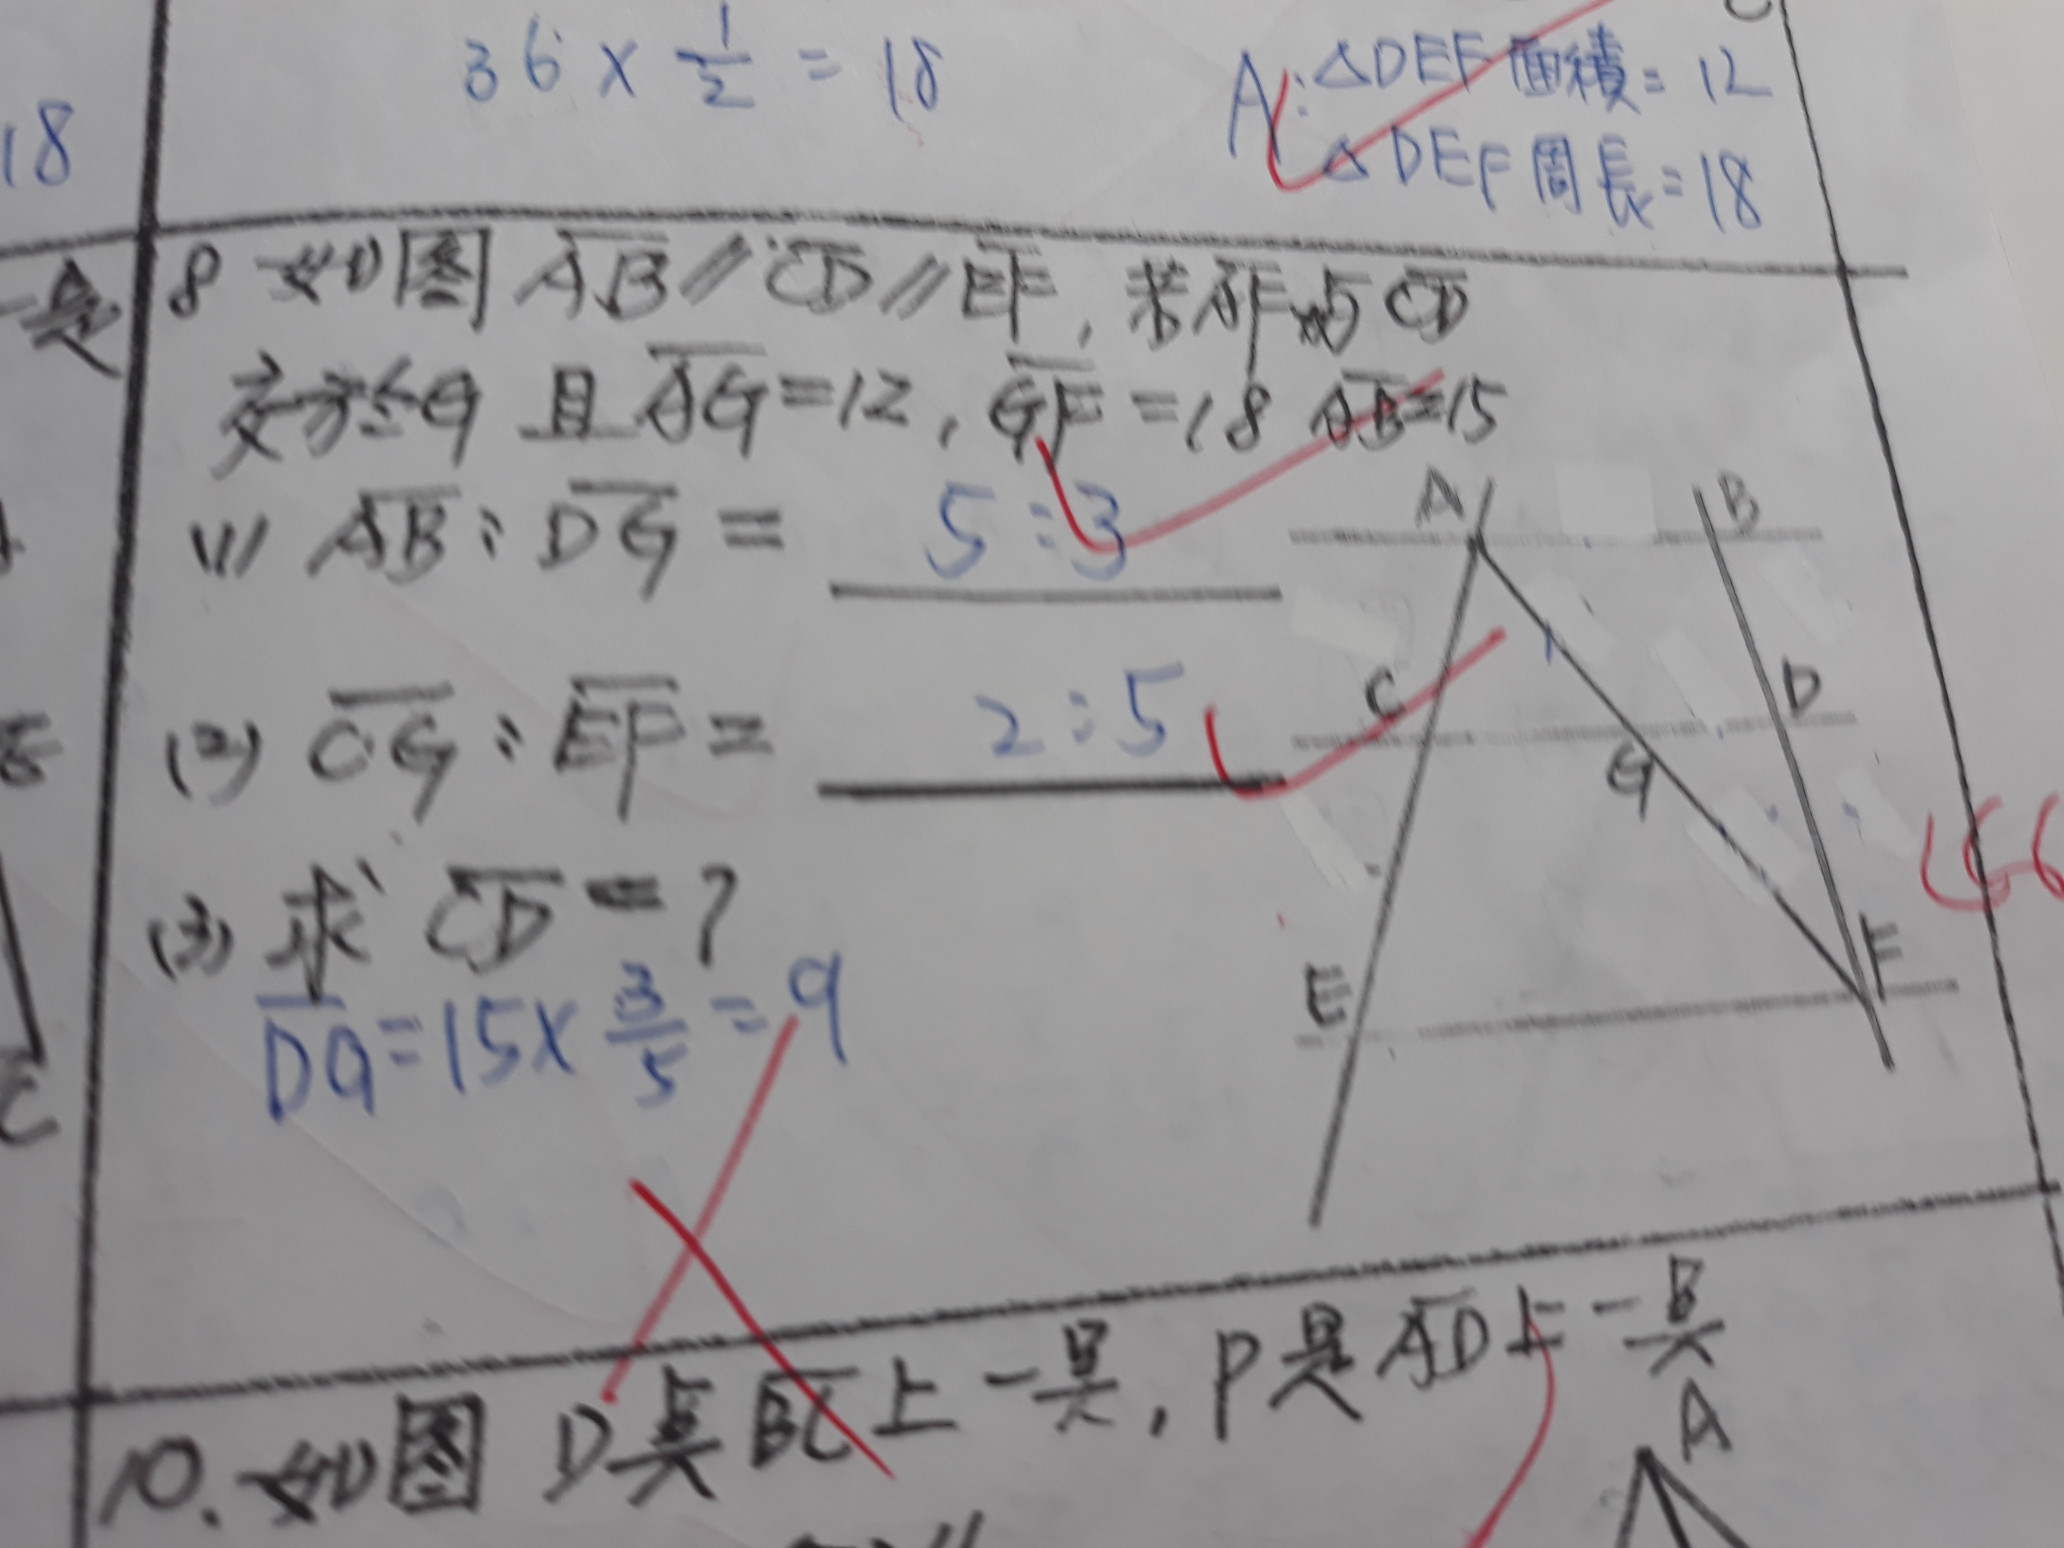 36 × 1/2 = 18
A: △DEF面積= 12
△DEF周長=18
18
8 如图 AB // CD // EF, 若AF与CD
交於G 且AG=12, GF=18 AB=15
(1) AB : DG = 5:3
(2) CG : EF = 2:5
(3) 求 CD = ?
DG=15× 3/5 =9
A
B
C
D
G
E
F
C
10. 如图 D是BC上一点, P是AD上一点
A